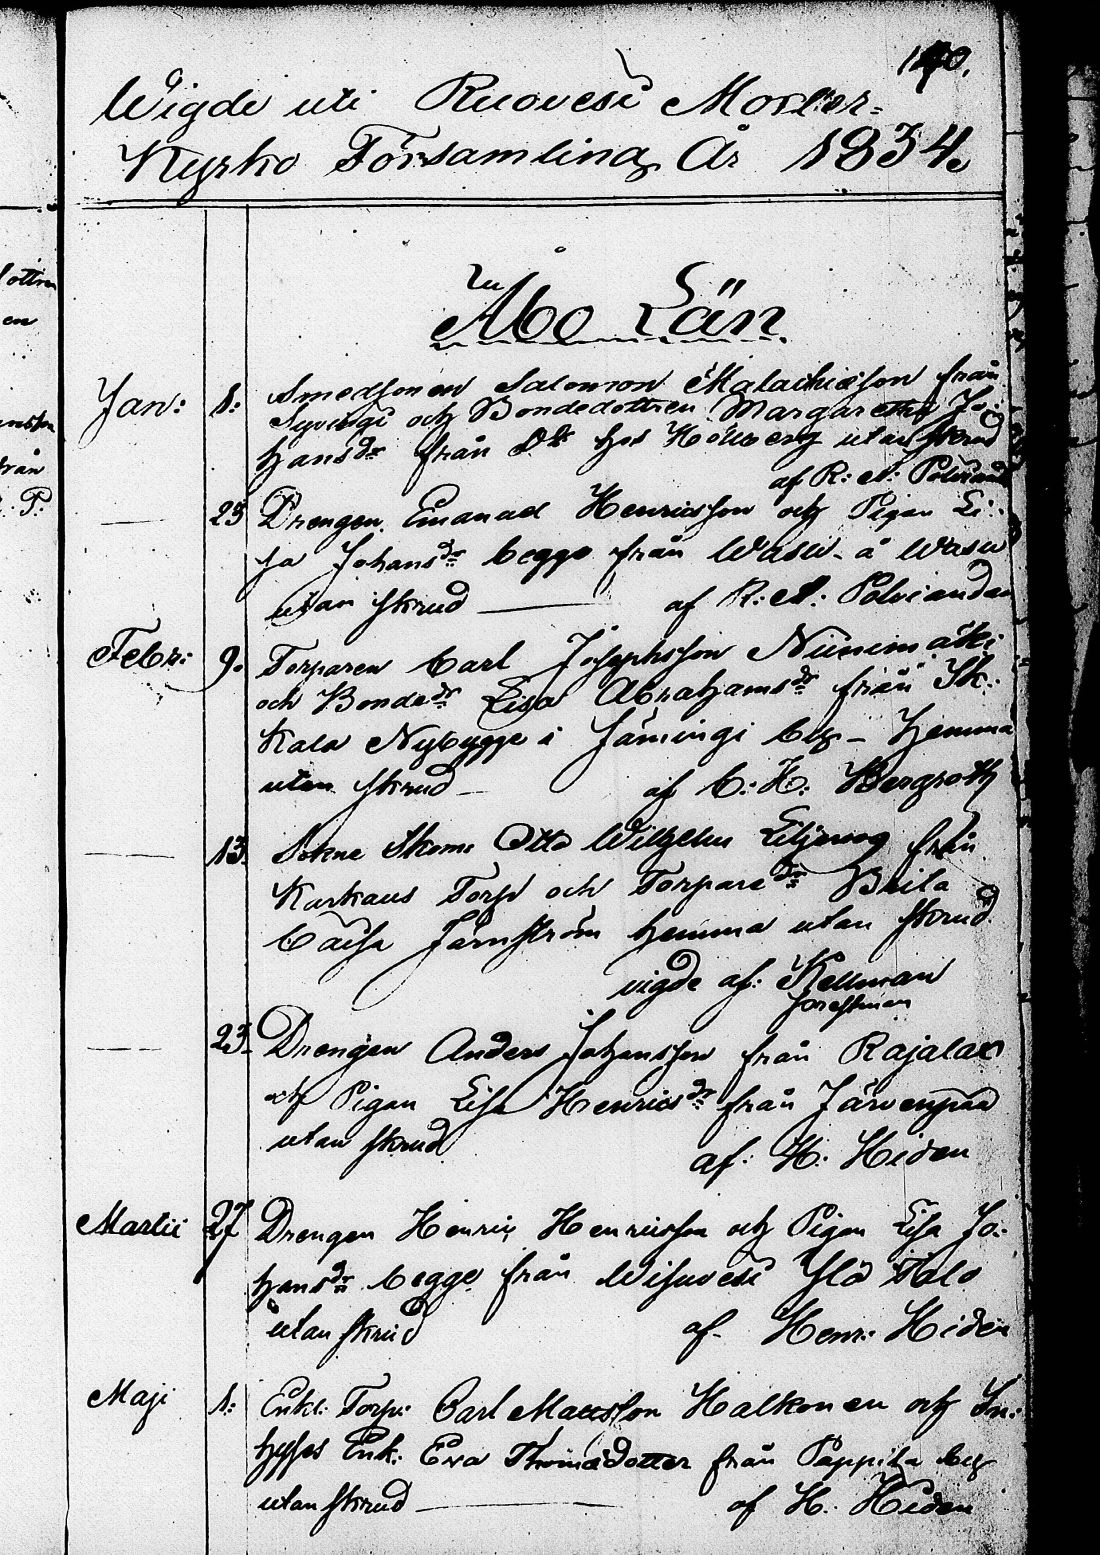 140.
Wigde uti Ruovesi Moder-
Kyrko Församling År 1834.
Åbo Län
Jan: 1: Smedsonen Salomon Malachiæson från
och Bondedottren Margaretha Jo-
hansdr från hos utan skrud
af R: A: Polviander
— 25 Drengen Emanuel Henricsson och Pigan Li-
sa Johansdr begge från Wasu å Wasu
utan skrud — af R: A: Polviander
Febr: 9. Torparen Carl Josephsson Niinimäki
och Bondedr Lisa Abrahamsdr från Sk-
kala Nybygge i Jämingi by - hemma
utan skrud — af C: H: Bergroth
— 13. Sokne Skom: Otto Wilhelm Liljeroog från
Karkaus Torp och Torparedr Brita
Caisa Järnström hemma utan skrud
vigde af: Kellman
— 23. Drengen Anders Johansson från Rajalax
och Pigan Lisa Henricsdr från Järvenpää
utan skrud
af: H: Hiden
Martii 27 Drengen Henric Henricsson och Pigan Lisa Jo-
hansdr begge från Wisuvesi Ylä Talo
utan skrud af - Henr: Hiden
Maji 1: Enkl: Torp: Carl Mattsson Halkonen och In-
hyses Enk: Eva Thomædotter från Pappila by
utan skrud — af H: Hiden
lottren
en
från
: P: